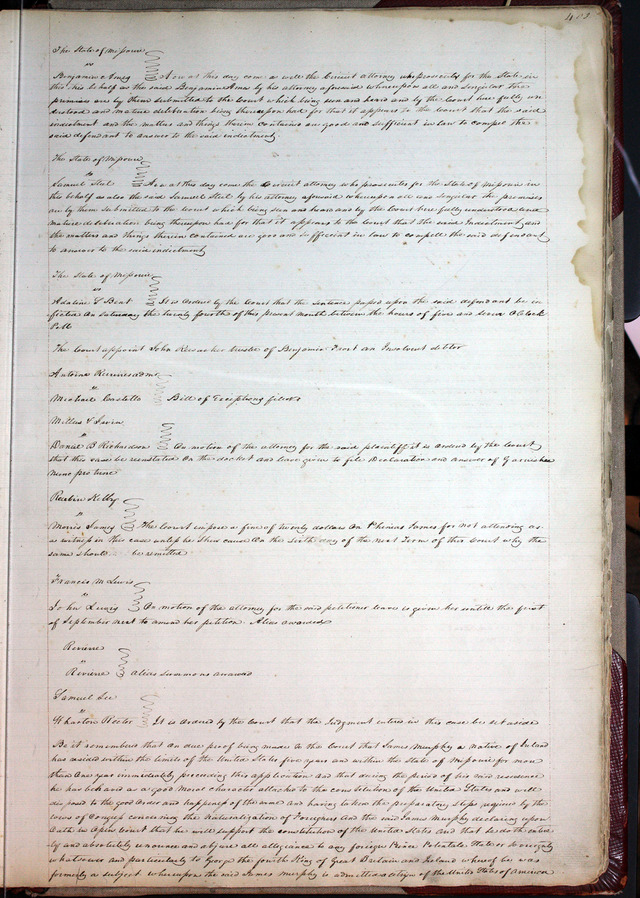 The State of Missouri
vs
Benjamin Amos Now at this day come as well the Circuit attorney who prosecutes for the State in
this behalf as the said Benjamin Amos by his attorney aforesaid whereupon all and singular the
premises are by them submitted to the Court which being seen and heard and by the Court here fully un
derstood and mature deliberation being thereupon had for that it appears to the Court that the said
indictment and the matters and things therein contained are good and sufficient in law to compel the
said defendant to answer to the said indictment
The State of Missouri
vs
Samuel Steel Now at this day come the Circuit attorney who prosecutes for the State of Missouri in
this behalf as also the said Samuel Steel by his attorney aforesaid whereupon all and singular the premises
are by them submitted to the Court which being seen and heard and by the Court here fully understood and
mature deliberation being thereupon had for that it appears to the Court that the said Indictment and
the matters and things therein contained are good and sufficient in law to compell the said defendant
to answer to the said indictment
The State of Missouri
vs
It is Ordered by the Court that the sentence passed upon the said defendant be in
flicted On Saturday the twenty fourth of this present month between the hours of five and seven OClock
The Court appoint John trustee of Benjamin an Insolvent debtor
Antoine admr
vs
Michael Castello Bill of Exceptions filed
vs
Daniel B Richardson On motion of the attorney for the said plaintiff it is ordered by the Court
that this case be reinstated On the docket and leave given to file Declaration and answer of Garnishee
nunc pro tunc
Reubin Kelley
vs
Morris James The Court impose a fine of twenty dollars On Phineas James for not attending as
a witness in this case unless he shew cause On the sixth day of the next Term of this Court why the
same should be remitted
Francis M Lewis
vs
John Lewis On motion of the attorney for the said petitioner leave is given her untill the first
of September next to amend her petition Alias awarded
Reviere
vs
Reviere alias summons awarded
Samuel Lee
vs
Wharton Rector It is ordered by the Court that the Judgment entered in this case be set aside
Be it remembered that on due proof being made to the Court that James Murphy a native of Ireland
has resided within the limits of the United States five years and within the State of Missouri for more
than One year immediately preceeding this application And that during the period of his said residence
he has behaved as a good Moral character attached to the constitution of the United States and well
disposed to the good Order and happiness of the same And having taken the preparatory steps required by the
laws of Congress concerning the Naturalization of Foreigners And the said James Murphy declaring upon
Oath in Open Court that he will support the constitution of the United States And that he doth entire
ly and absolutely renounce and abjure all allegiance to any foreign Prince Potentate State or Sovereignty
whatsoever and particularly to George the fourth King of Great Britain and Ireland whereof he was
formerly a subject whereupon the said James Murphy is admitted a citizen of the United States of America